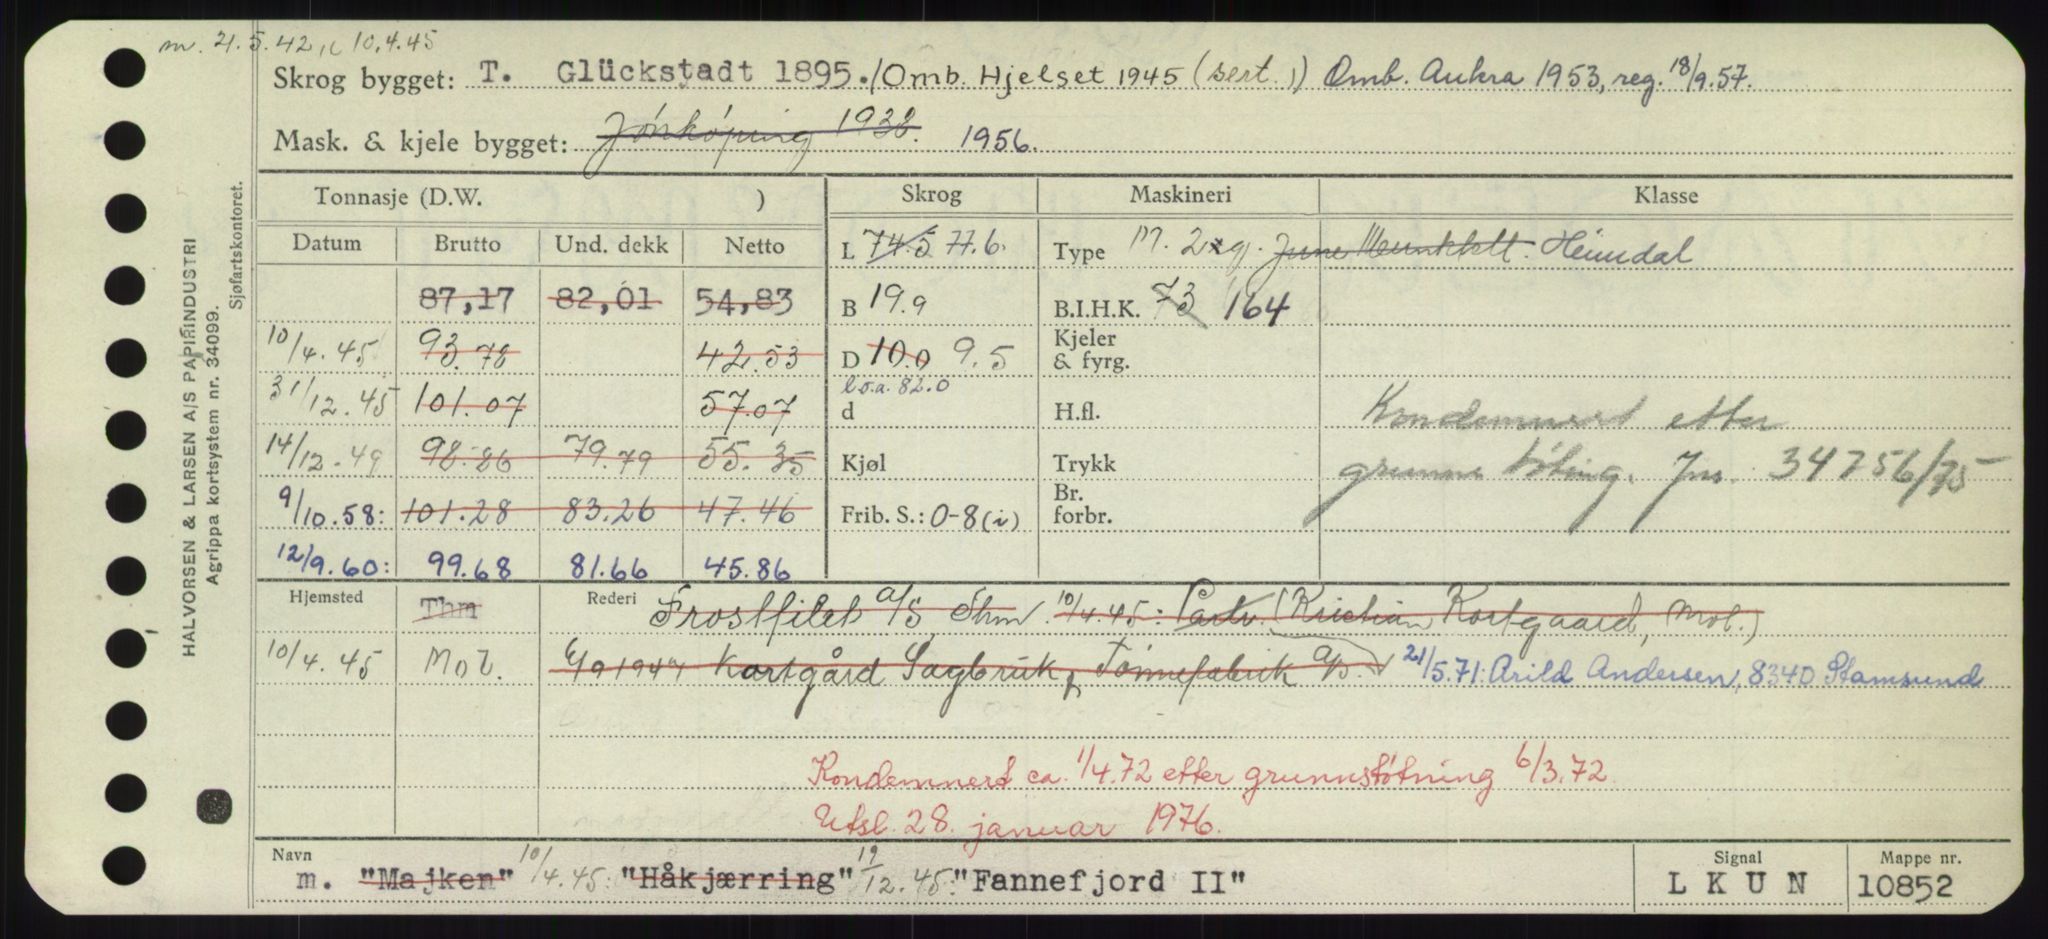 m. 21.5.42, 10.4.45
Skrog bygget: T. Glückstadt 1895./Omb. Hjelset 1945 (sert.) Omb. Aukra 1953, reg. 18/9.57.
Mask. & kjele bygget: Jönköping 1938. 1956.
Tonnasje (D.W. ) Skrog Maskineri Klasse
Datum Brutto Und. dekk Netto L 74.5 77.6. Type M. 2 Heimdal
87,17 82,01 54,83 B 19.9 B.I.H.K. 73 164
10/4.45 93.78 42.53 D 10.0 9.5 Kjeler & fyrg.
l.o.a. 82.0
31/12.45 101.07 57.07 d H.fl. Kondemnert etter
14/12.49 98.86 79.79 55.35 Kjøl Trykk grunnstøting. Jnr. 34256/75
9/10.58: 101.28 83.26 47.46 Frib. S.: 0-8 (i) Br. forbr.
12/9.60: 99.68 81.66 45.86
Hjemsted Thm Rederi Frostfilet A/S Thm. 10/4.45: Partr. (Kristian Kortgaard, Mol.)
10/4.45 Mol. Kortgård Sagbruk & Tønnefabrik A/S. 21/5.71: Arild Andersen, 8340 Stamsund
Kondemnert ca. 1/4.72 etter grunnstøtning 6/3.72.
Utsl. 28. januar 1976.
Navn Signal Mappe nr.
m. "Majken" 10/4.45: "Håkjærring" 19/12.45: "Fannefjord II" L K U N 10852
HALVORSEN & LARSEN A/S PAPIRINDUSTRI
Agrippa kortsystem nr. 34099.
Sjøfartskontoret.